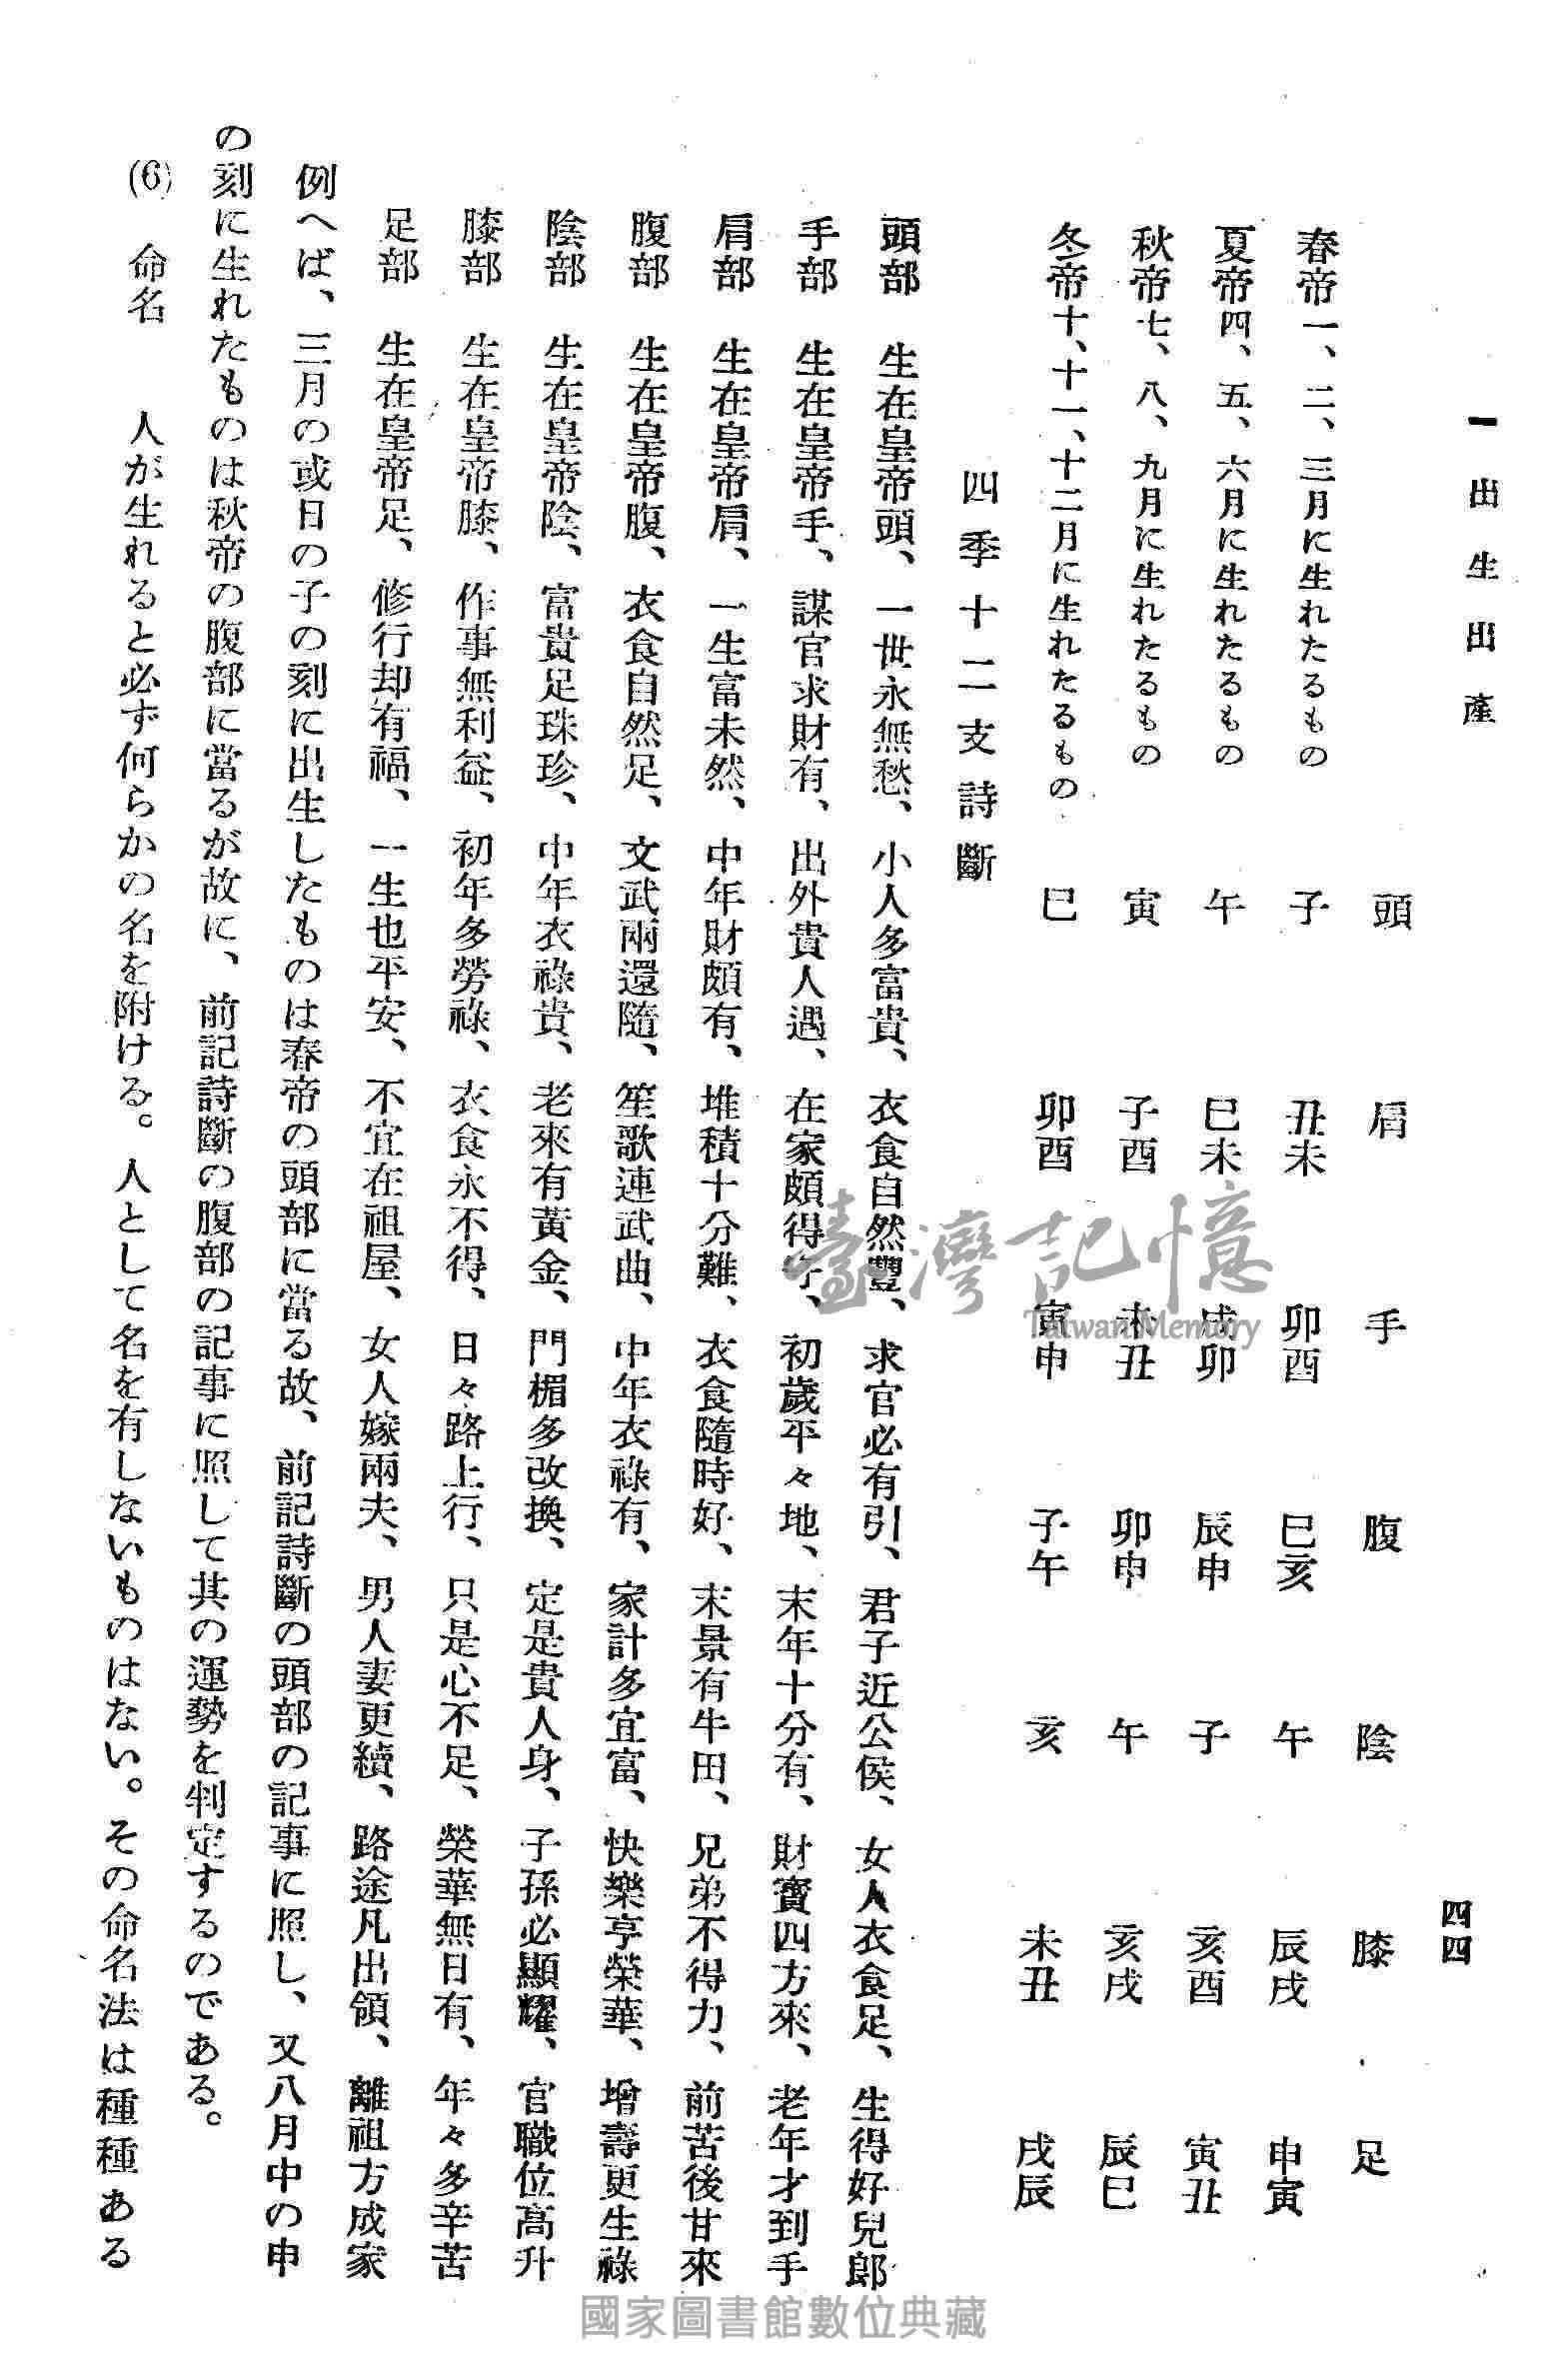 一 出生出產
四四
頭 肩 手 腹 陰 膝 足
春帝一、二、三月に生れたるもの 子 丑未 卯酉 巳亥 午 辰戌 申寅
夏帝四、五、六月に生れたるもの 午 巳未 戌卯 辰申 子 亥酉 寅丑
秋帝七、八、九月に生れたるもの 寅 子酉 未丑 卯申 午 亥戌 辰巳
冬帝十、十一、十二月に生れたるもの 巳 卯酉 寅申 子午 亥 未丑 戌辰
四季十二支詩斷
頭部 生在皇帝頭、一世永無愁、小人多富貴、衣食自然豐、求官必有引、君子近公侯、女人衣食足、生得好兒郎
手部 生在皇帝手、謀官求財有、出外貴人遇、在家頗得守、初歲平々地、末年十分有、財寶四方來、老年才到手
肩部 生在皇帝肩、一生富未然、中年財頗有、堆積十分難、衣食隨時好、末景有牛田、兄弟不得力、前苦後甘來
腹部 生在皇帝腹、衣食自然足、文武兩還隨、笙歌連武曲、中年衣祿有、家計多宜富、快樂亨榮華、增壽更生祿
陰部 生在皇帝陰、富貴足珠珍、中年衣祿貴、老來有黃金、門楣多改換、定是貴人身、子孫必顯耀、官職位高升
膝部 生在皇帝膝、作事無利益、初年多勞祿、衣食永不得、日々路上行、只是心不足、榮華無日有、年々多辛苦
足部 生在皇帝足、修行却有福、一生也平安、不宜在祖屋、女人嫁兩夫、男人妻更續、路途凡出領、離祖方成家
例へば、三月の或日の子の刻に出生したものは春帝の頭部に當る故、前記詩斷の頭部の記事に照し、又八月中の申
の刻に生れたものは秋帝の腹部に當るが故に、前記詩斷の腹部の記事に照して其の運勢を判定するのである。
(6) 命名 人が生れると必ず何らかの名を附ける。人として名を有しないものはない。その命名法は種種ある
臺灣記憶
Taiwan Memory
國家圖書館數位典藏